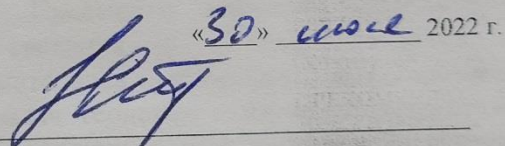 «30» июля 2022 г.